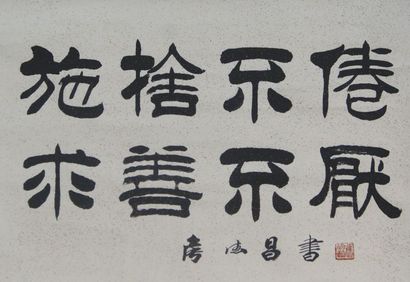 施捨不倦
求善不厭
昌書